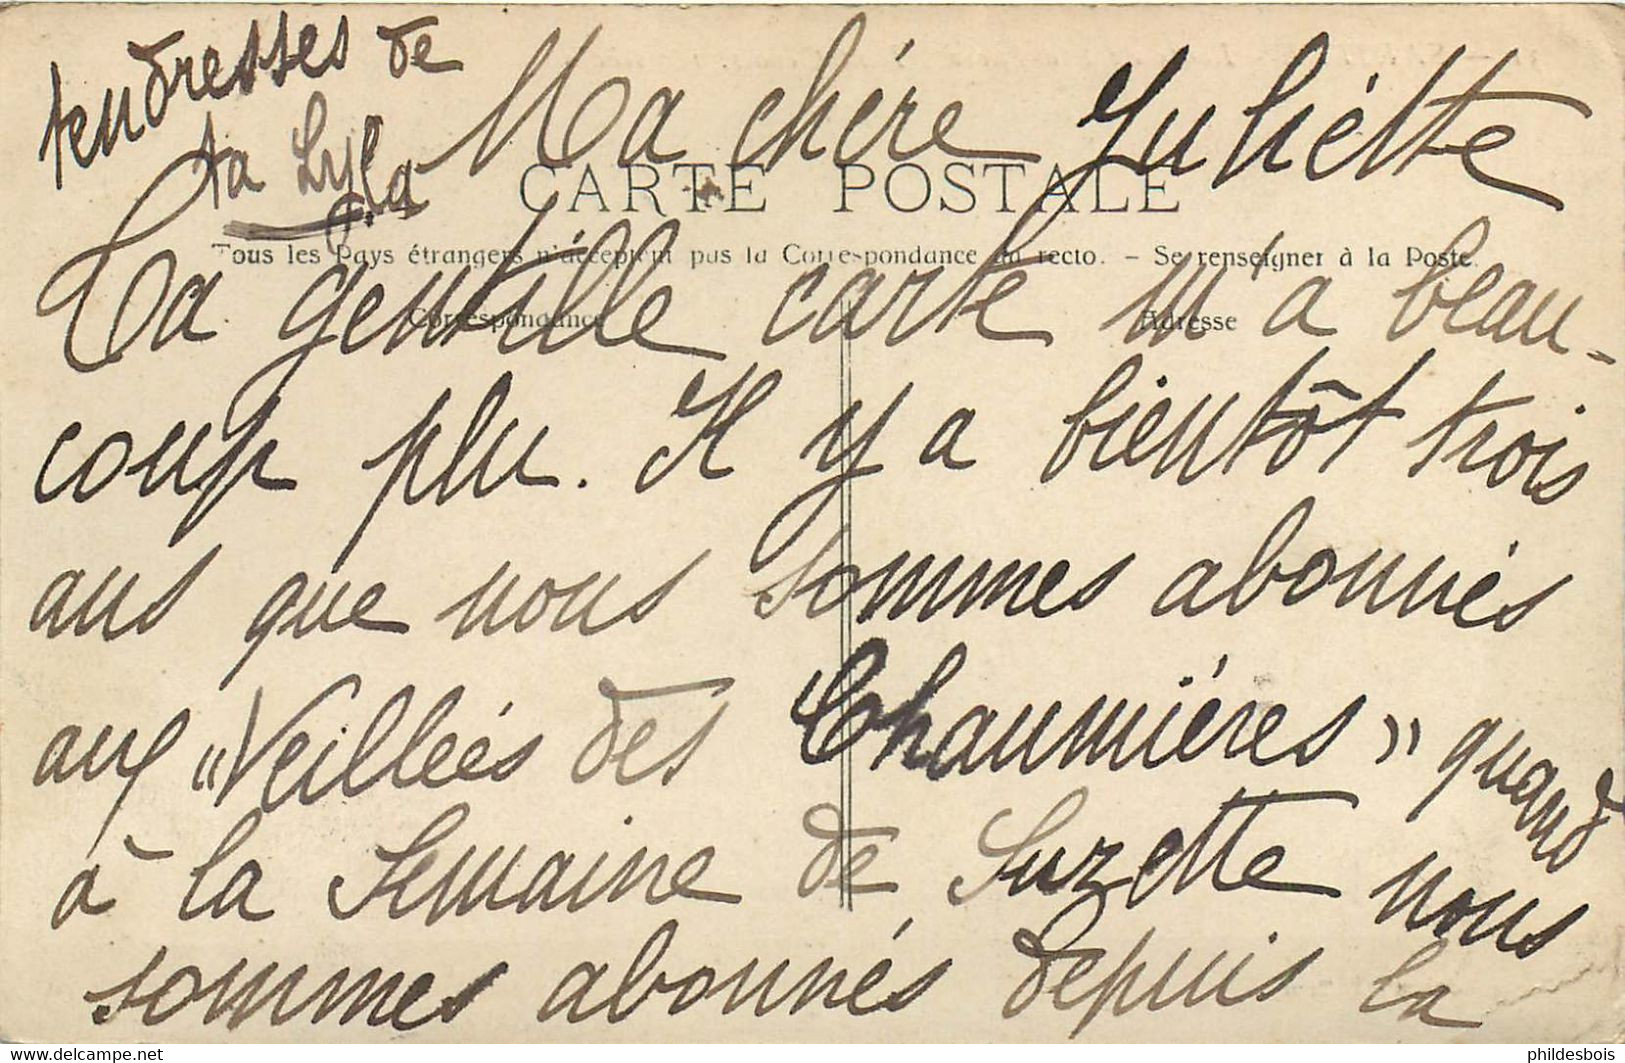 tendresses de
ta Lyla
Ma chère Juliette
CARTE POSTALE
Tous les Pays étrangers n'acceptent pas la Correspondance au recto. - Se renseigner à la Poste.
Correspondance
Adresse
Ta gentille carte m'a beau-
coup plu. Il y a bientôt trois
ans que nous sommes abonnés
aux "Veilleés des Chaumières" quand
à la Semaine de Suzette nous
sommes abonnés depuis la
delcampe.net
phildesbois